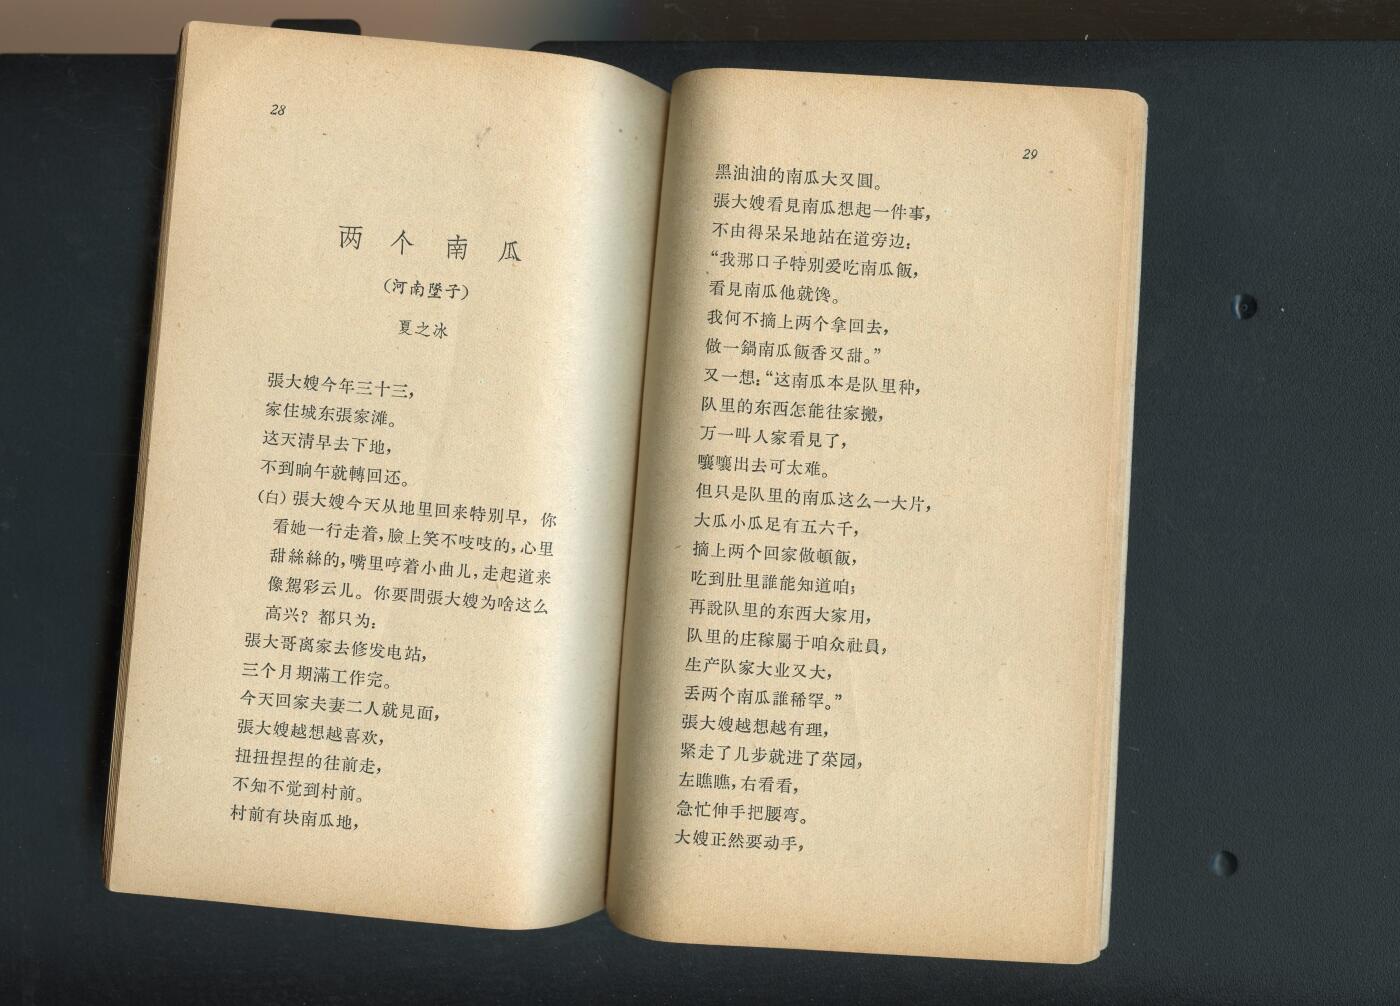 28
两个南瓜
（河南墜子）
夏之冰
張大嫂今年三十三，
家住城东張家滩。
这天清早去下地，
不到晌午就轉回还。
（白）張大嫂今天从地里回来特別早，你
看她一行走着，臉上笑不吱吱的，心里
甜絲絲的，嘴里哼着小曲儿，走起道来
像駕彩云儿。你要問張大嫂为啥这么
高兴？都只为：
張大哥离家去修发电站，
三个月期滿工作完。
今天回家夫妻二人就見面，
張大嫂越想越喜欢，
扭扭捏捏的往前走，
不知不觉到村前。
村前有块南瓜地，
29
黑油油的南瓜大又圓。
張大嫂看見南瓜想起一件事，
不由得呆呆地站在道旁边：
“我那口子特別爱吃南瓜飯，
看見南瓜他就馋。
我何不摘上两个拿回去，
做一鍋南瓜飯香又甜。”
又一想：“这南瓜本是队里种，
队里的东西怎能往家搬，
万一叫人家看見了，
嚷嚷出去可太难。
但只是队里的南瓜这么一大片，
大瓜小瓜足有五六千，
摘上两个回家做頓飯，
吃到肚里誰能知道咱；
再說队里的东西大家用，
队里的庄稼屬于咱众社員，
生产队家大业又大，
丢两个南瓜誰稀罕。”
張大嫂越想越有理，
紧走了几步就进了菜园，
左瞧瞧，右看看，
急忙伸手把腰弯。
大嫂正然要动手，